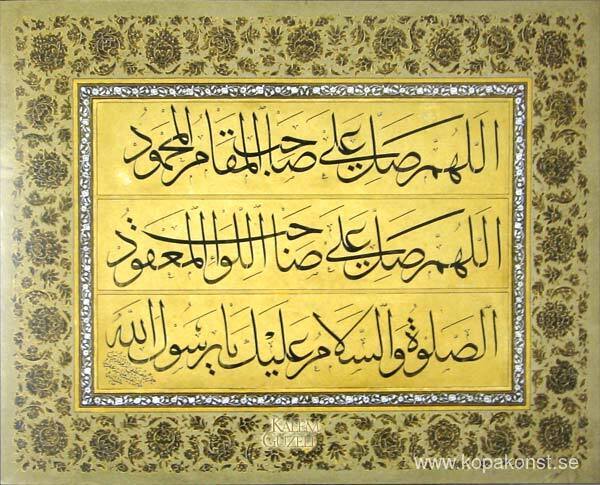 اللهم صل على صاحب المقام المحمود
اللهم صل على صاحب اللواء المعقود
الصلوة والسلام عليك يا رسول الله
KALEM
GÜZELİ
www.kopakonst.se